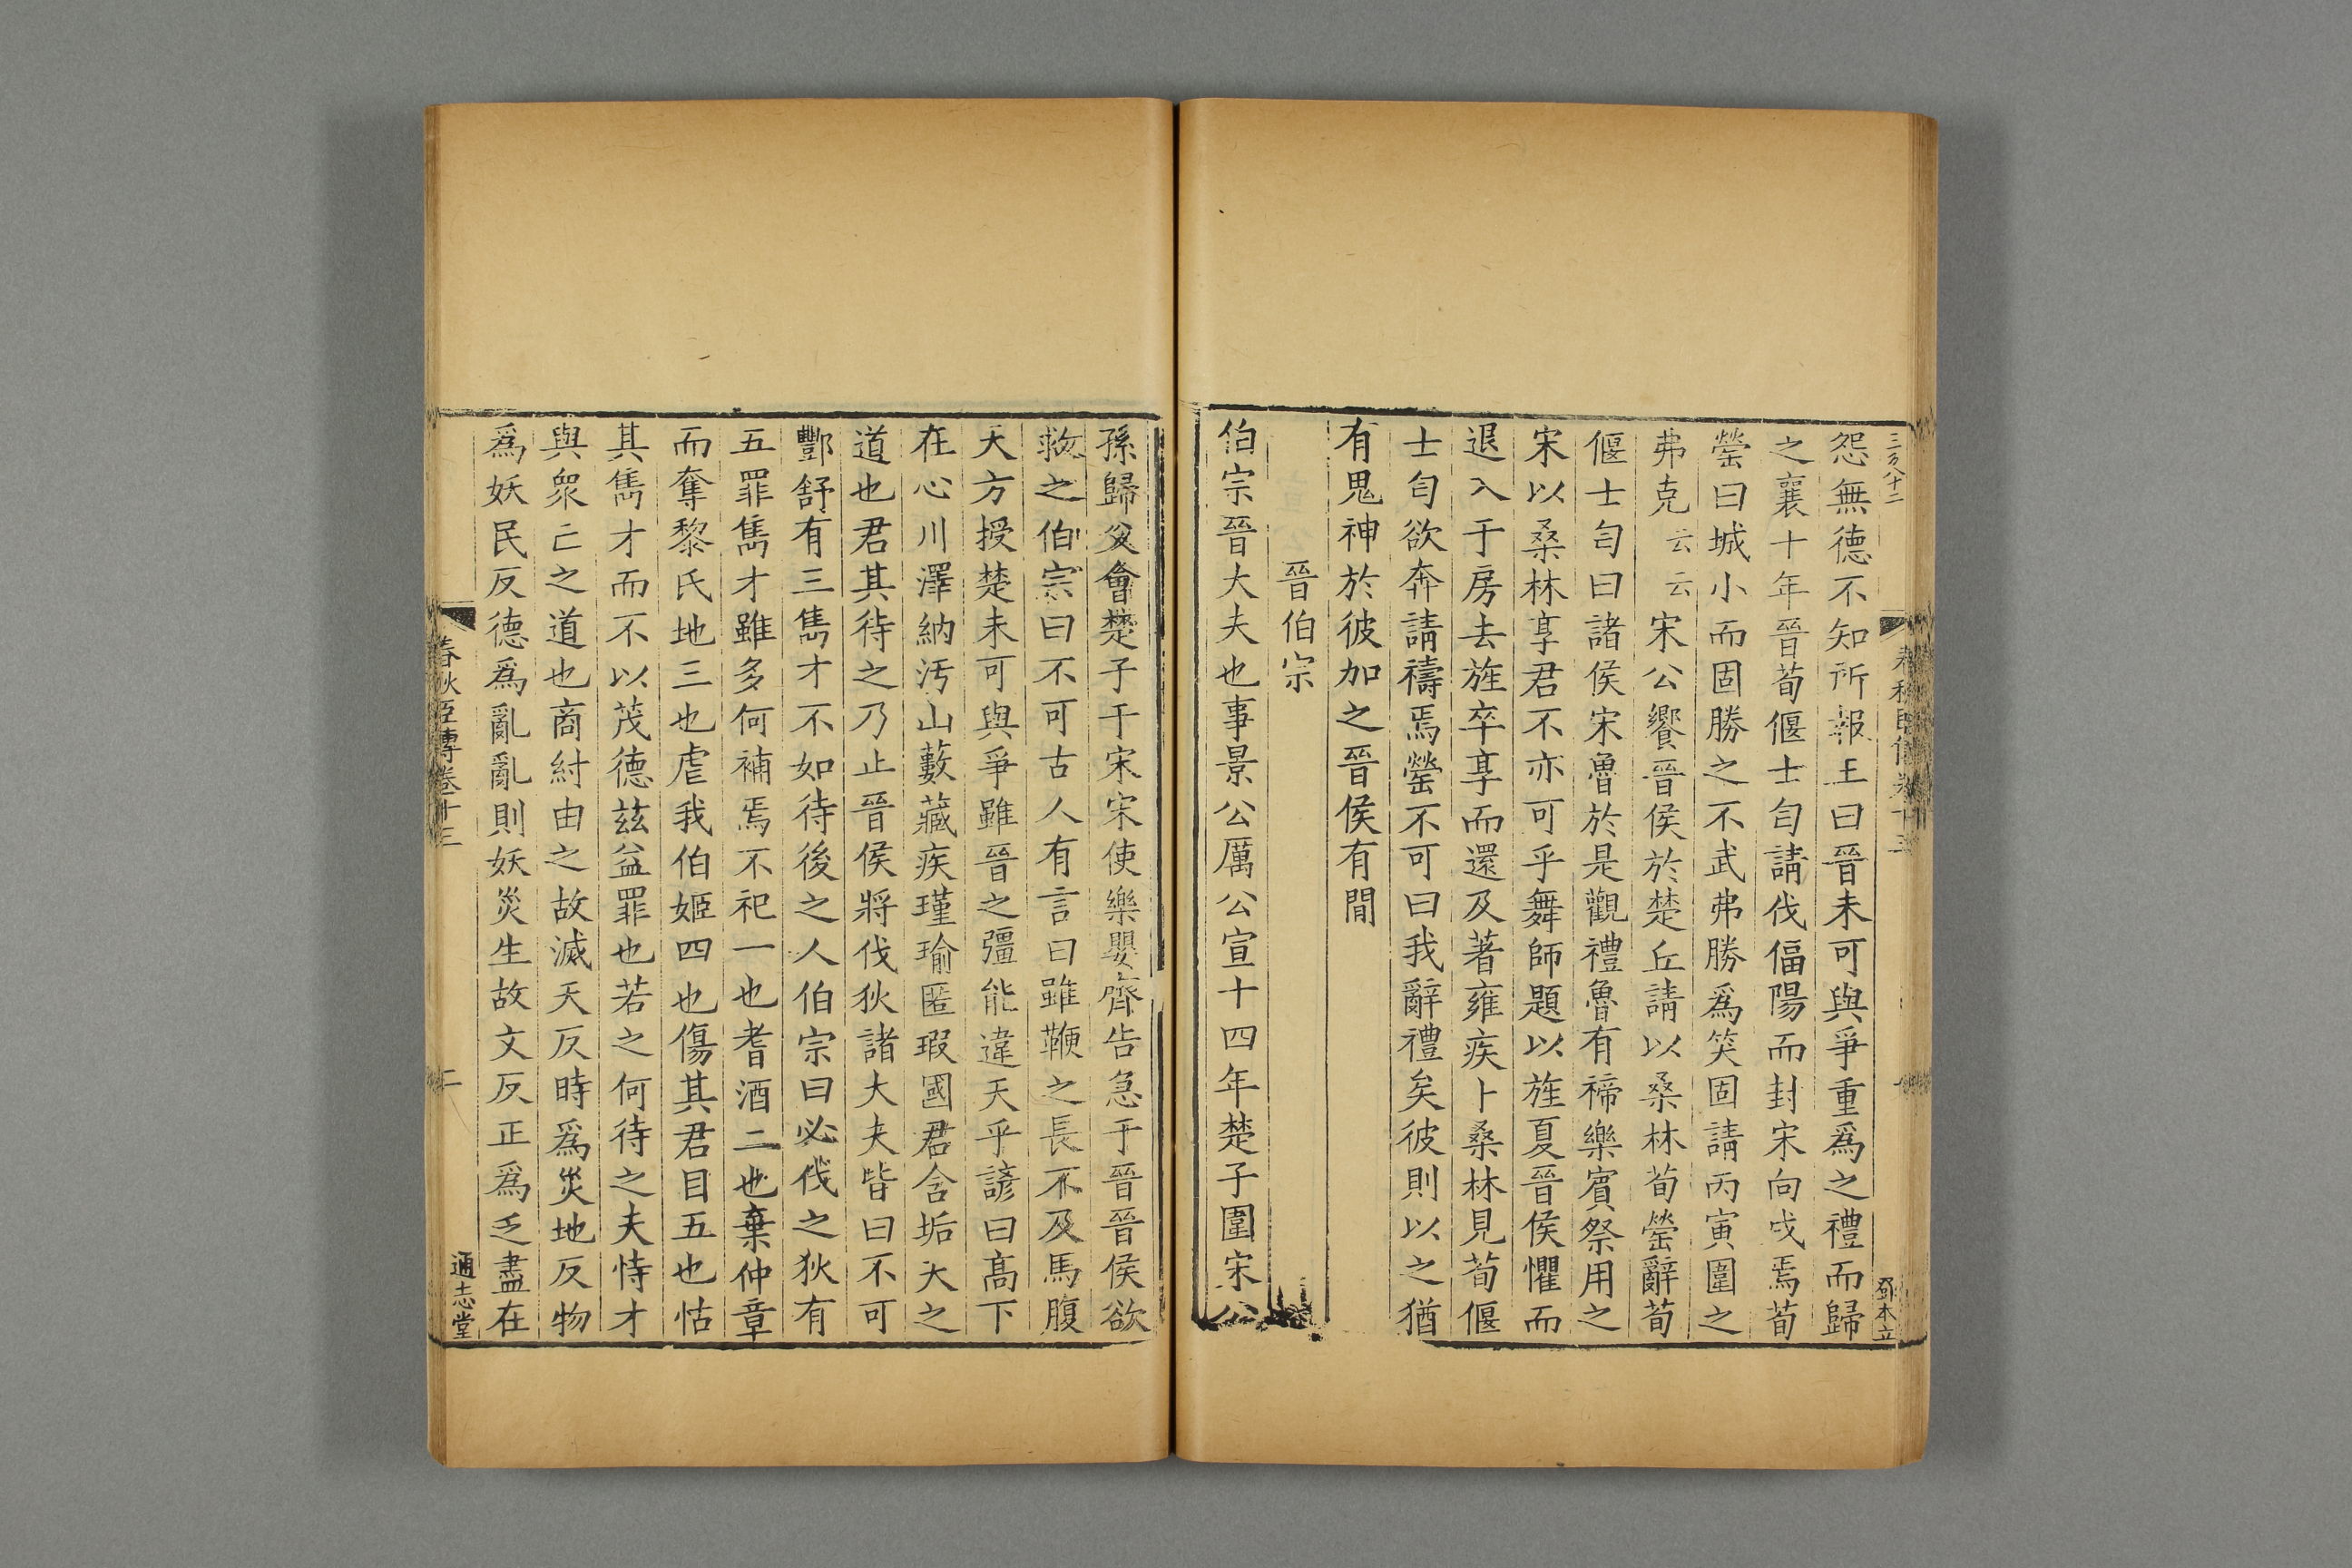 怨無德不知所報王曰晉未可與爭重爲之禮而歸
之襄十年晉荀偃士匄請伐偪陽而封宋向戌焉荀
罃曰城小而固勝之不武弗勝爲笑固請丙寅圍之
弗克云云宋公饗晉侯於楚丘請以桑林荀罃辭荀
偃士匄曰諸侯宋魯於是觀禮魯有禘樂賓祭用之
宋以桑林享君不亦可乎舞師題以旌夏晉侯懼而
退入于房去旌卒享而還及著雍疾卜桑林見荀偃
士匄欲奔請禱焉罃不可曰我辭禮矣彼則以之猶
有鬼神於彼加之晉侯有閒
晉伯宗
伯宗晉大夫也事景公厲公宣十四年楚子圍宋公
孫歸父會楚子于宋宋使樂嬰齊告急于晉晉侯欲
救之伯宗曰不可古人有言曰雖鞭之長不及馬腹
天方授楚未可與爭雖晉之彊能違天乎諺曰高下
在心川澤納汚山藪藏疾瑾瑜匿瑕國君含垢天之
道也君其待之乃止晉侯將伐狄諸大夫皆曰不可
酆舒有三雋才不如待後之人伯宗曰必伐之狄有
五罪雋才雖多何補焉不祀一也耆酒二也棄仲章
而奪黎氏地三也虐我伯姬四也傷其君目五也怙
其雋才而不以茂德茲益罪也若之何待之夫恃才
與衆亡之道也商紂由之故滅天反時爲災地反物
爲妖民反德爲亂亂則妖災生故文反正爲乏盡在
春秋臣傳卷十三
二
通志堂
鄧本立